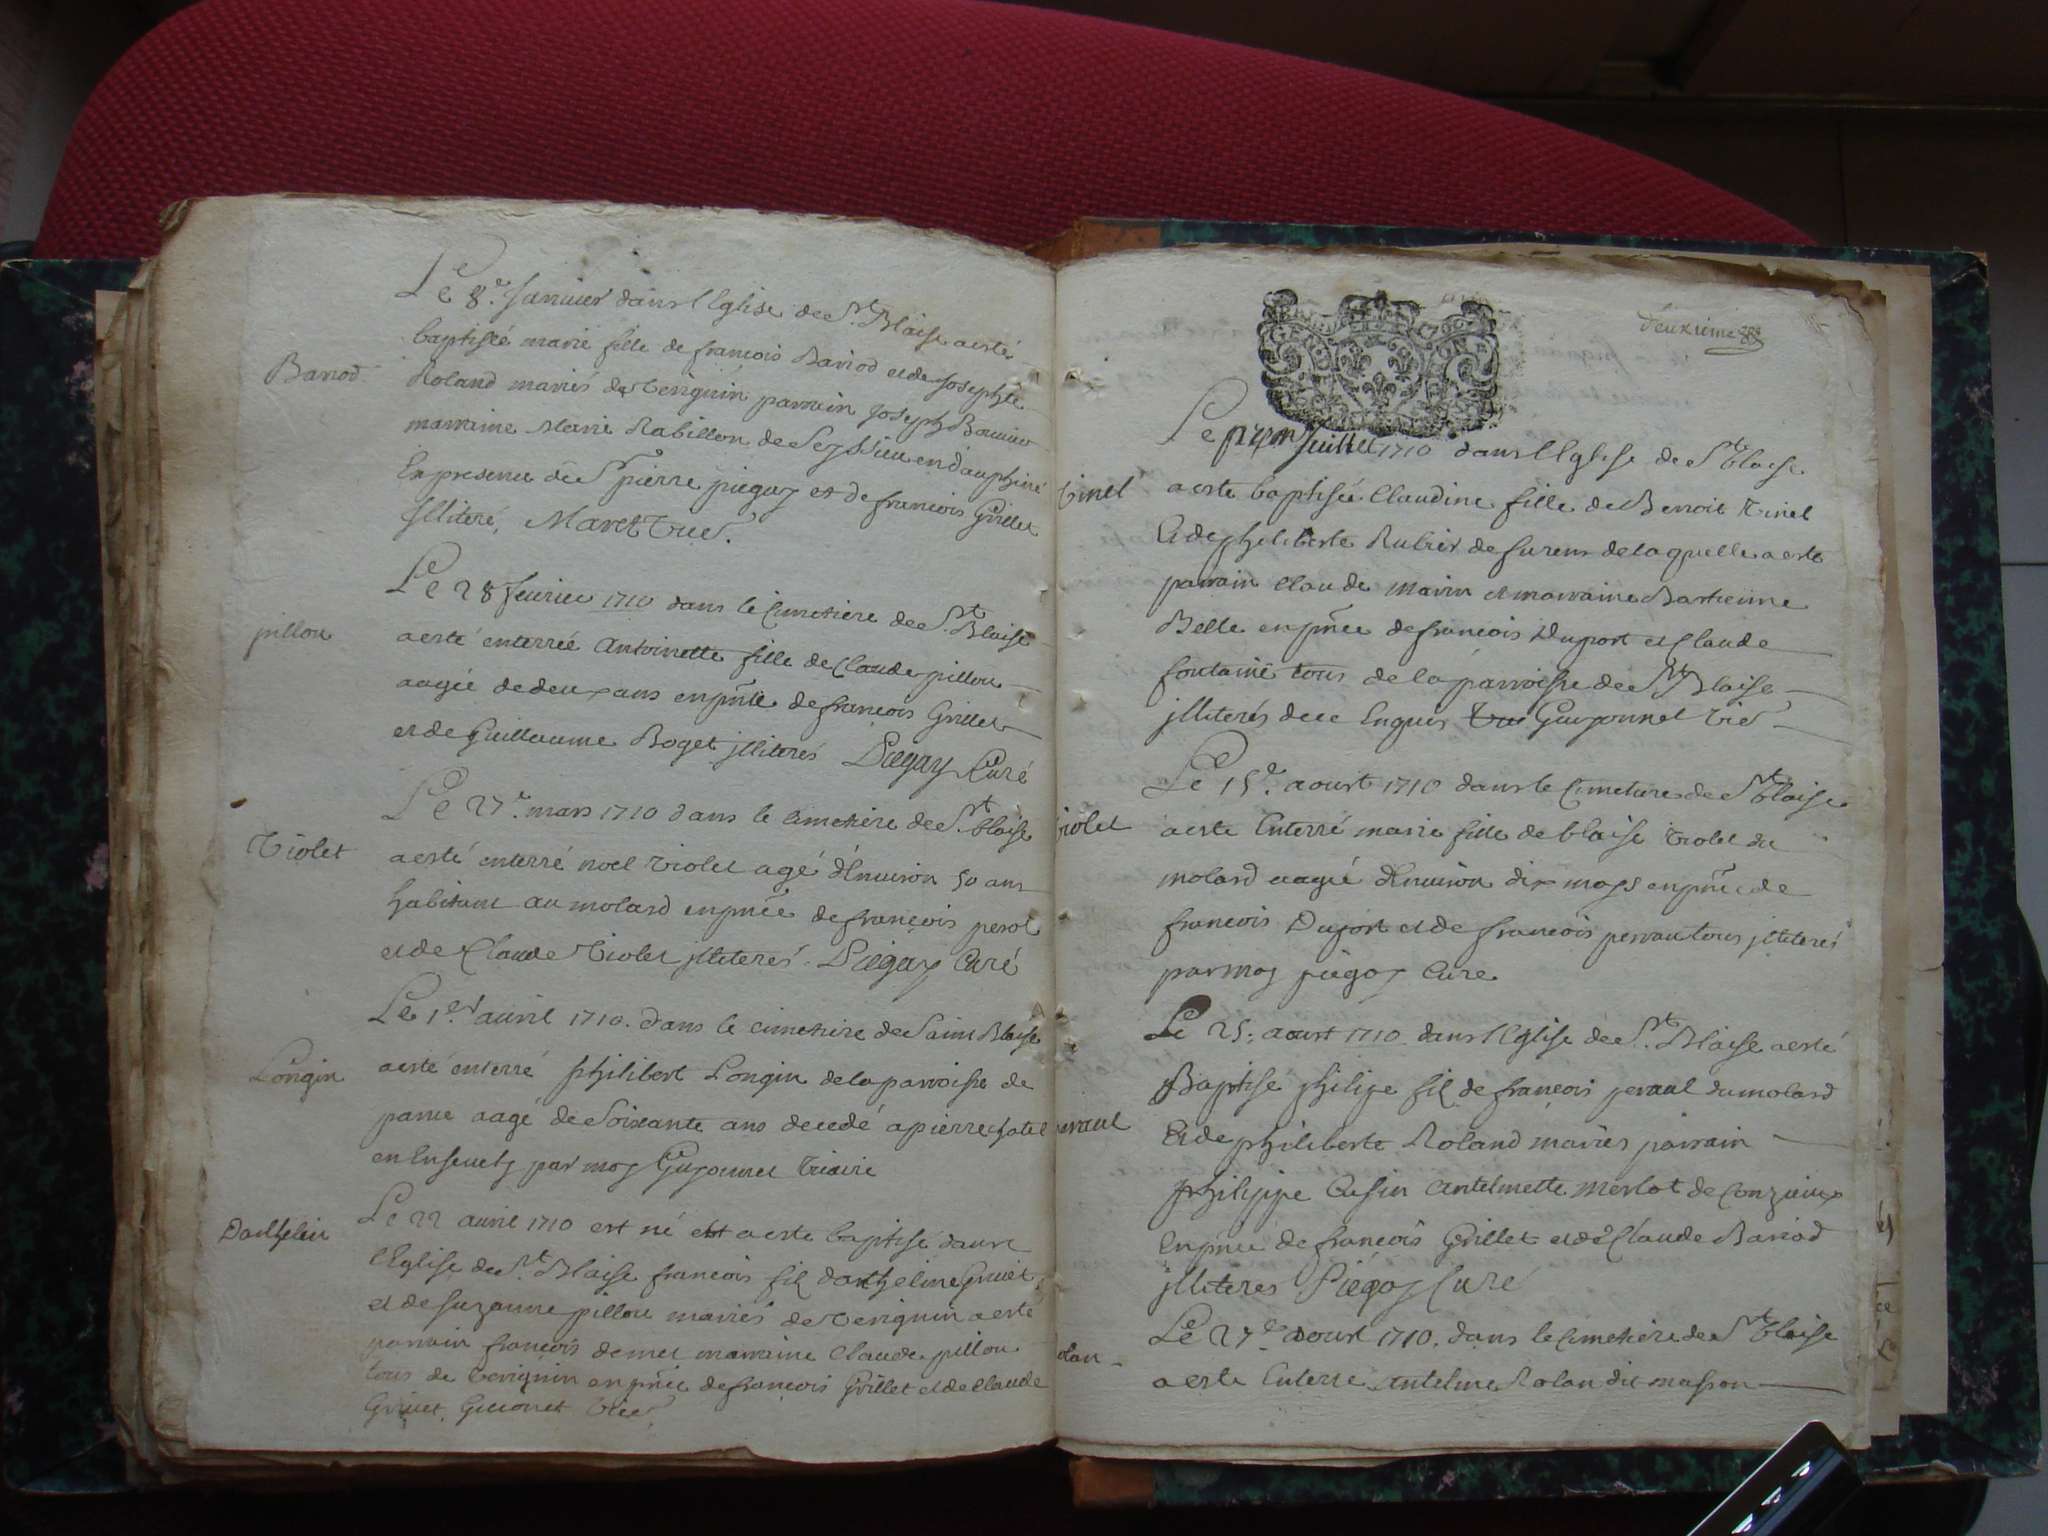 Le 8.e Janvier dans l'Eglise de St. Blaise a esté
baptisée marie fille de françois Bariod et de Josephte
Bariod
Roland mariés de Verignin parrain Joseph
marraine Marie Rabillon de Seyssieu en dauphiné
En presence de Sr pierre piegay et de francois Grillet
Illiteré, Maret Vic.
Le 28 feurier 1710 dans le Cimetiere de St. Blaise
pillou
a esté enterrée Antoinette fille de Claude pillou
aagée de deux ans en pñce de françois Grillet
et de Guillaume Boget jlliterés Piegay Curé
Le 27.e mars 1710 dans le cimetiere de St. blaise
Violet
a esté enterré noel Violet agé d'Enuiron 50 ans
habitant au molard en pñce de françois perol
et de Claude Violet jlliterés. Piegay Curé
Le 1.er auril 1710. dans le cimetiere de Saint Blaise
Longin
a esté enterré philibert Longin de la parroisse de
aagé de Soixante ans decedé a pierre chatel
par moy Guyonnet Vicaire
Le 22 auril 1710 est né et a este baptisé dans
Danthelin
l'Eglise de St. Blaise francois fils danthelme Griuet
et de suzanne pillou mariés de Verignin a esté
parrain françois demet marraine Claude pillou
tous de Verignin en pñce de francois Grillet et de Claude
Griuet. Guionet Vic.
deuxieme
Le Juillet 1710 dans l'Eglise de St blaise
tinet
a este baptisée Claudine fille de Benoit Tinet
Et de philiberte Rubier de furens de laquelle a este
parrain Claude Marin et marraine
Belle en pñce de francois Duport et Claude
fontaine tous de la parroisse de St Blaise
jlliterés de ce Enquis Guyonnet Vic
Le 15.e aoust 1710 dans le Cimetiere de St blaise
violet
a este Enterré marie fille de blaise Violet du
molard aagée d'Enuiron dix moys en pñce de
francois Duport et de francois perrau tous jlliterés
par moy piegay Cure
Le 25. aoust 1710 dans l'Eglise de St. Blaise a esté
Baptisé philipe fils de françois peraul du molard
peraul
Et de philiberte Roland mariés parrain
philippe Cusin Antelmette merlot de Conzieux
En pñce de francois Grillet et de Claude Bariod
jlliteres Piegay Curé
Le 27.e aoust 1710. dans le Cimetiere de St blaise
olan
a este Enterré Antelme Rolan dit masson